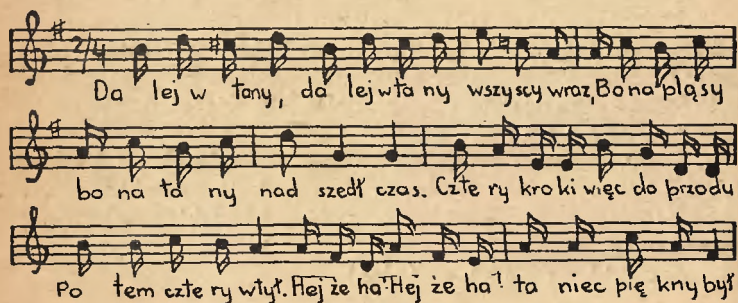 2/4
Da lej w tany, da lej w ta ny wszyscy wraz, Bo na pląsy
bo na ta ny nad szedł czas. Czte ry kro ki więc do przodu
Po tem czte ry wtył. Hej że ha! Hej że ha! ta niec pię kny był